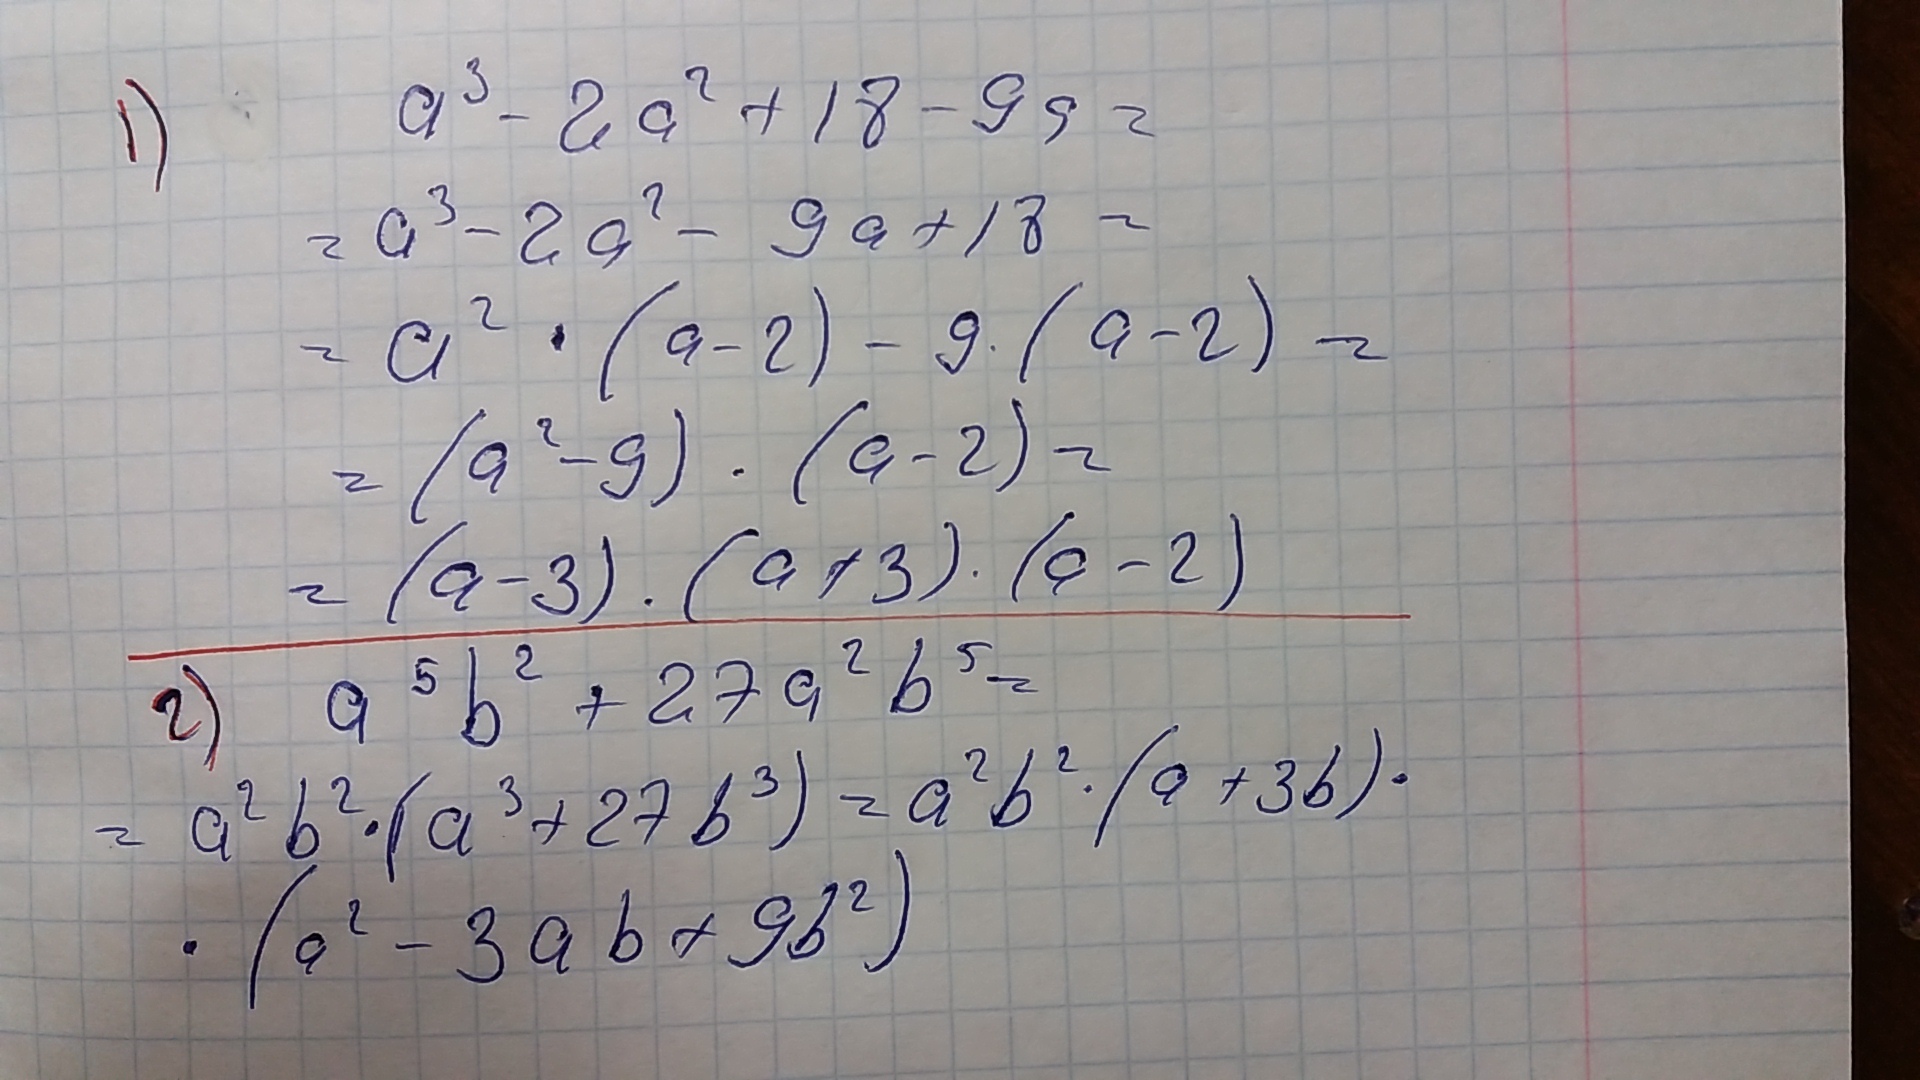 1) a³ - 2a² + 18 - 9a =
= a³ - 2a² - 9a + 18 =
= a² · (a - 2) - 9 · (a - 2) =
= (a² - 9) · (a - 2) =
= (a - 3) · (a + 3) · (a - 2)
2) a⁵b² + 27a²b⁵ =
= a²b² · (a³ + 27b³) = a²b² · (a + 3b) ·
· (a² - 3ab + 9b²)